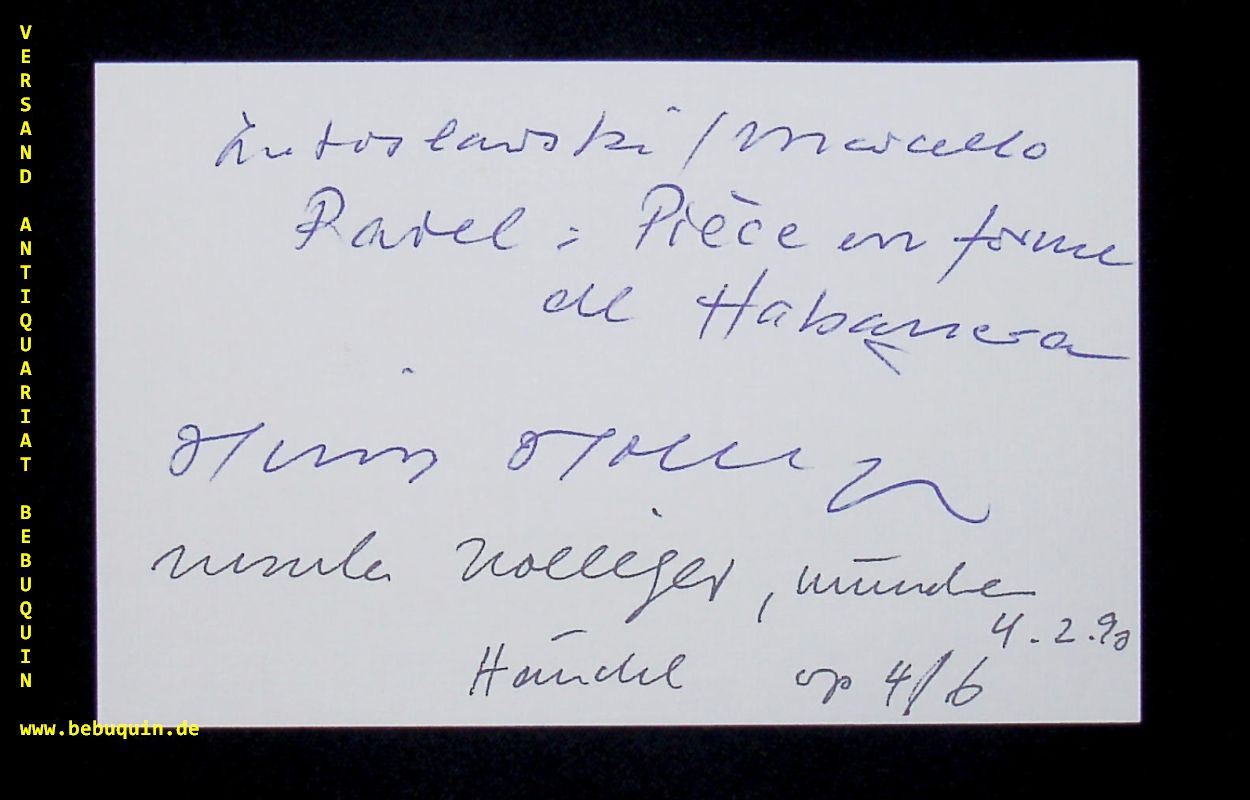 VERSAND ANTIQUARIAT BEBUQUIN
www.bebuquin.de
Lutoslawski / Marcello
Ravel : Pièce en forme
de Habanera
Heinz Holliger
Ursula Holliger,
4.2.90
Händel op 4/6